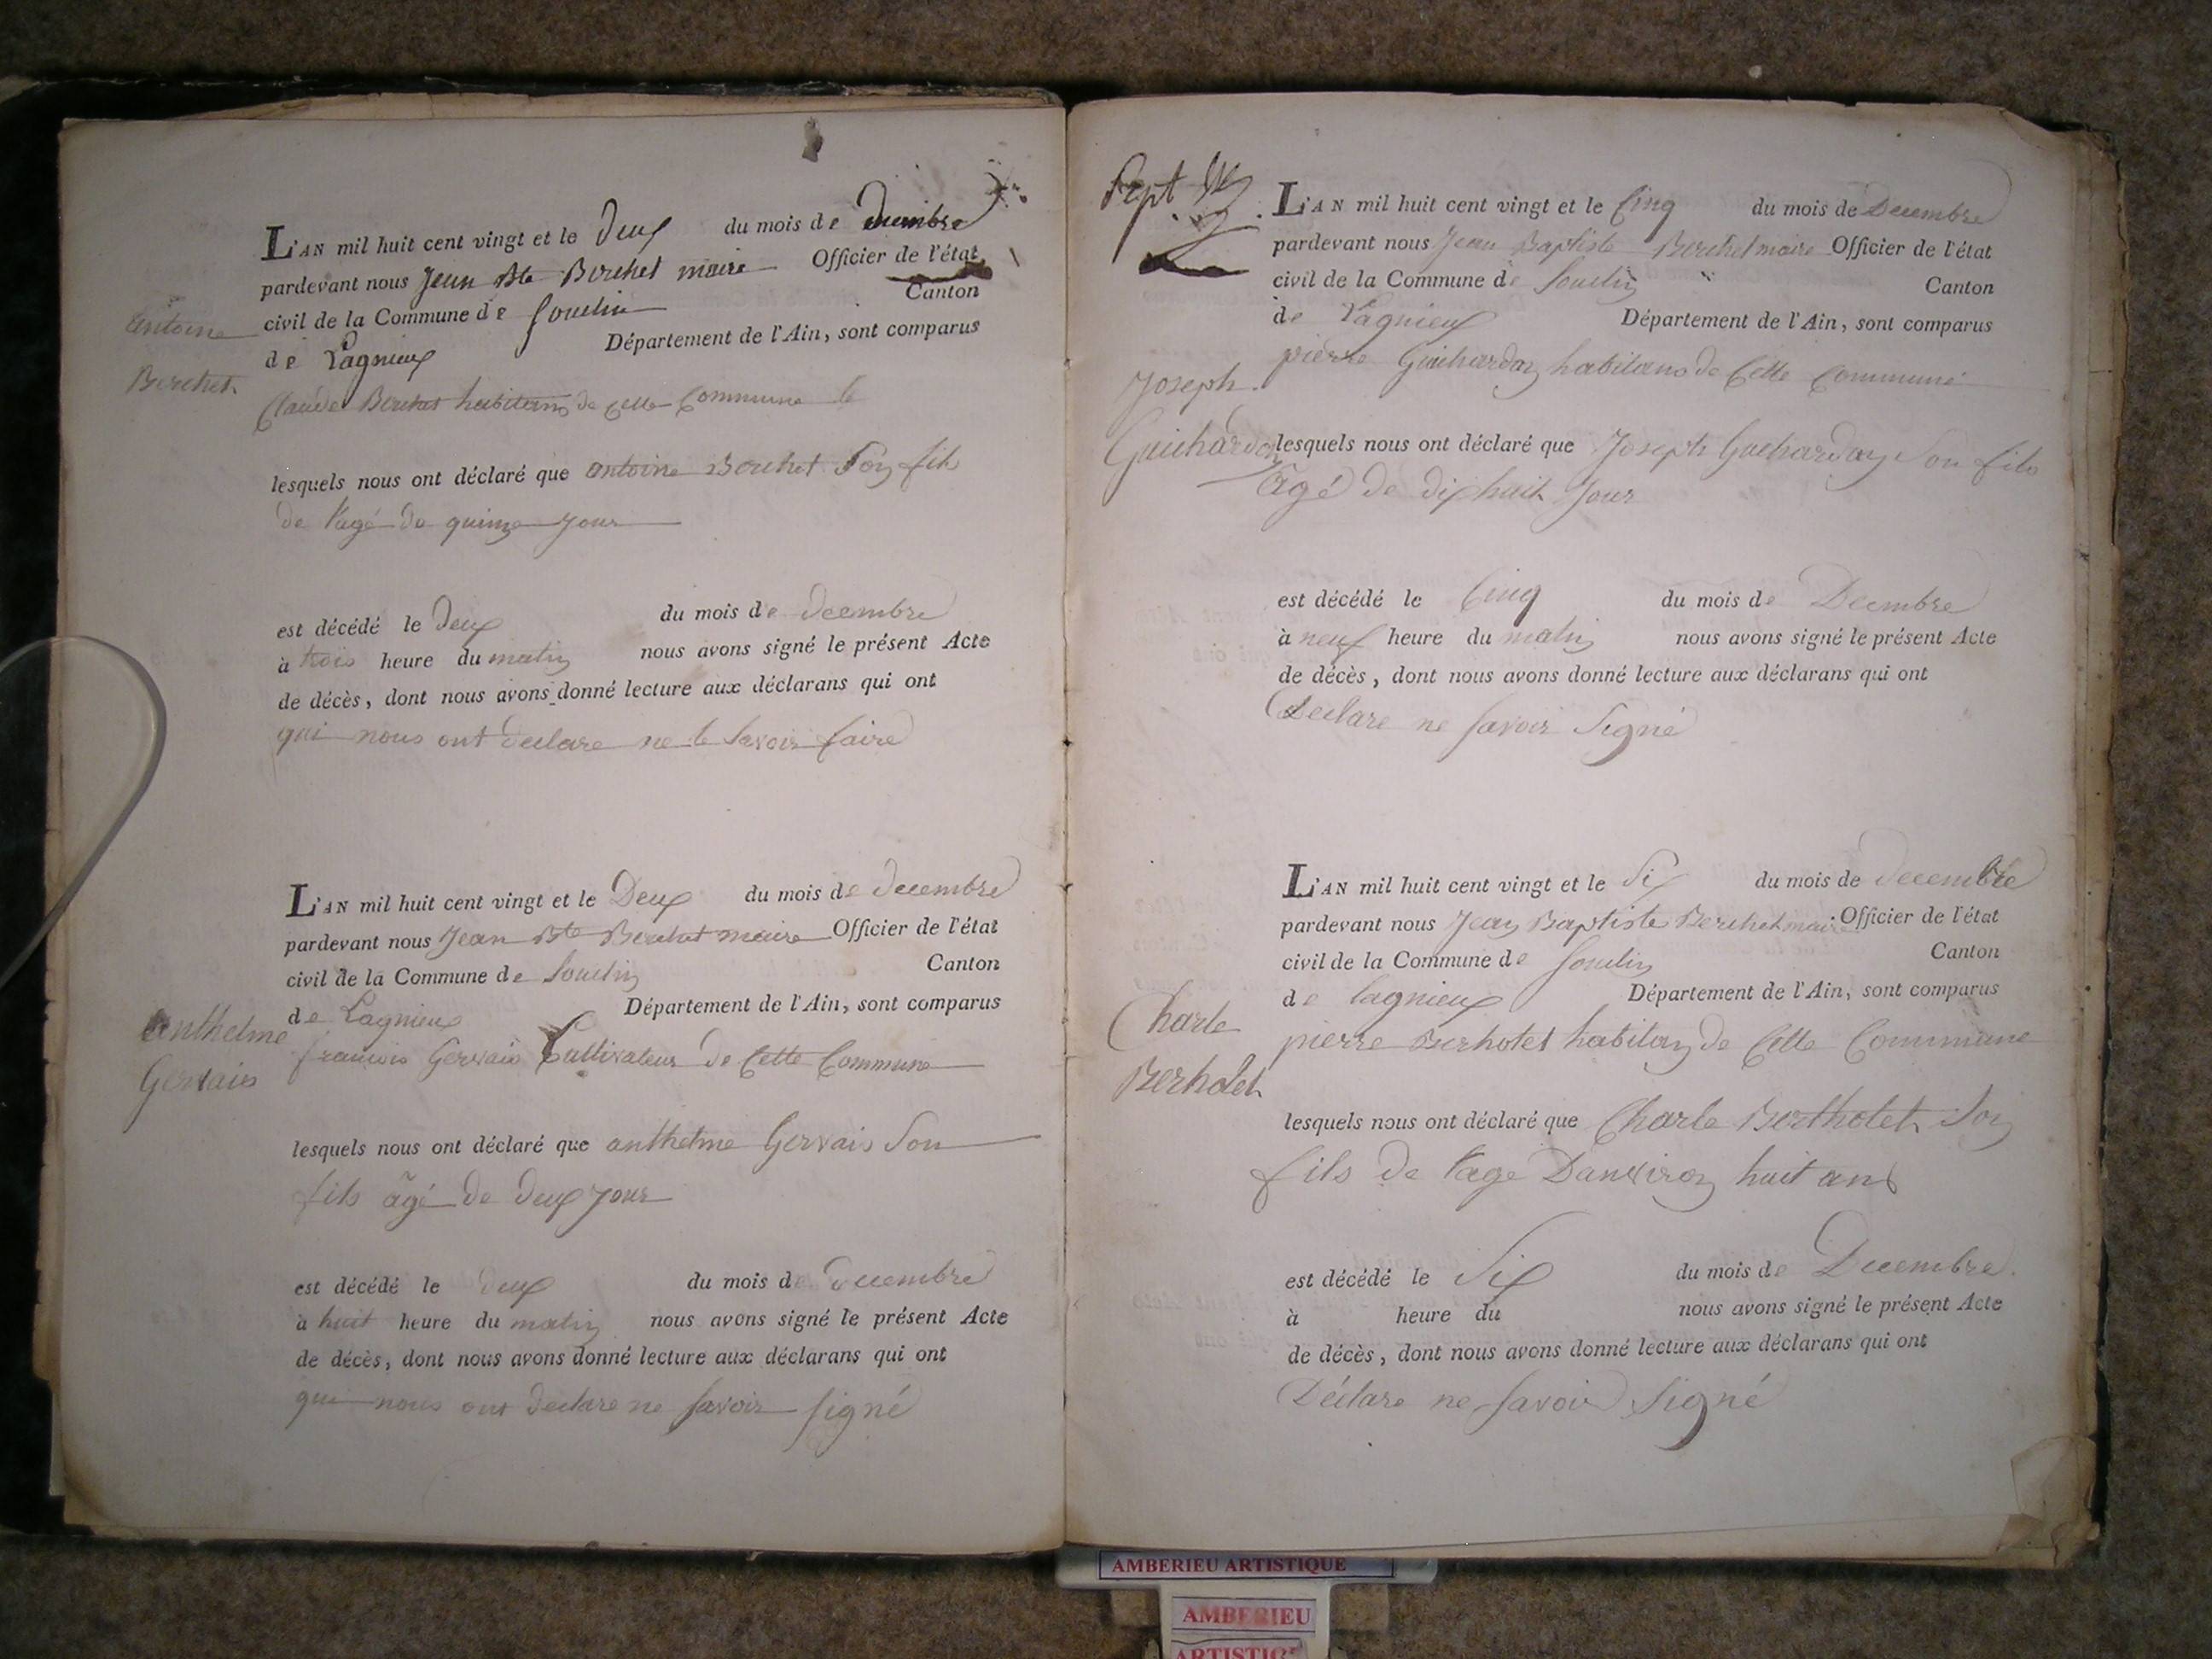 L'AN mil huit cent vingt et le Deux du mois de decembre
pardevant nous Jean Bte Berchet maire Officier de l'état
civil de la Commune de Souclin Canton
de Lagnieux Département de l'Ain, sont comparus
Antoine
Berchet
Claude Berchet habitans de cette Commune le
lesquels nous ont déclaré que antoine Berchet Son fils
de l'agé de quinze jour
est décédé le deux du mois de decembre
à trois heure du matin nous avons signé le présent Acte
de décès, dont nous avons donné lecture aux déclarans qui ont
qui nous ont declare ne le Savoir faire
L'AN mil huit cent vingt et le Deux du mois de decembre
pardevant nous Jean Bte Berchet maire Officier de l'état
civil de la Commune de Souclin Canton
de Lagnieux Département de l'Ain, sont comparus
anthelme
Gervais
francois Gervais Cultivateur de Cette Commune
lesquels nous ont déclaré que anthelme Gervais Son
fils âgé de deux jour
est décédé le deux du mois de decembre
à huit heure du matin nous avons signé le présent Acte
de décès, dont nous avons donné lecture aux déclarans qui ont
qui nous ont declare ne savoir signé
Sept
L'AN mil huit cent vingt et le Cinq du mois de Decembre
pardevant nous Jean Baptiste Berchet maire Officier de l'état
civil de la Commune de Souclin Canton
de Lagnieux Département de l'Ain, sont comparus
pierre Guichardon habitans de Cette Commune
Joseph
Guichardon
lesquels nous ont déclaré que Joseph Guchardon Son fils
agé de dix huit Jour
est décédé le Cinq du mois de Decembre
à neuf heure du matin nous avons signé le présent Acte
de décès, dont nous avons donné lecture aux déclarans qui ont
Declare ne savoir Signé
L'AN mil huit cent vingt et le Six du mois de decembre
pardevant nous Jean Baptiste Berchet maire Officier de l'état
civil de la Commune de Souclin Canton
de lagnieux Département de l'Ain, sont comparus
Charle
Berholet
pierre Berhotet habitan de Cette Commune
lesquels nous ont déclaré que Charle Bertholet Son
fils de l'age Danviron huit ans
est décédé le Six du mois de Decembre
à heure du nous avons signé le présent Acte
de décès, dont nous avons donné lecture aux déclarans qui ont
Déclare ne savoir Signé
AMBERIEU ARTISTIQUE
AMBERIEU
ARTISTIQUE